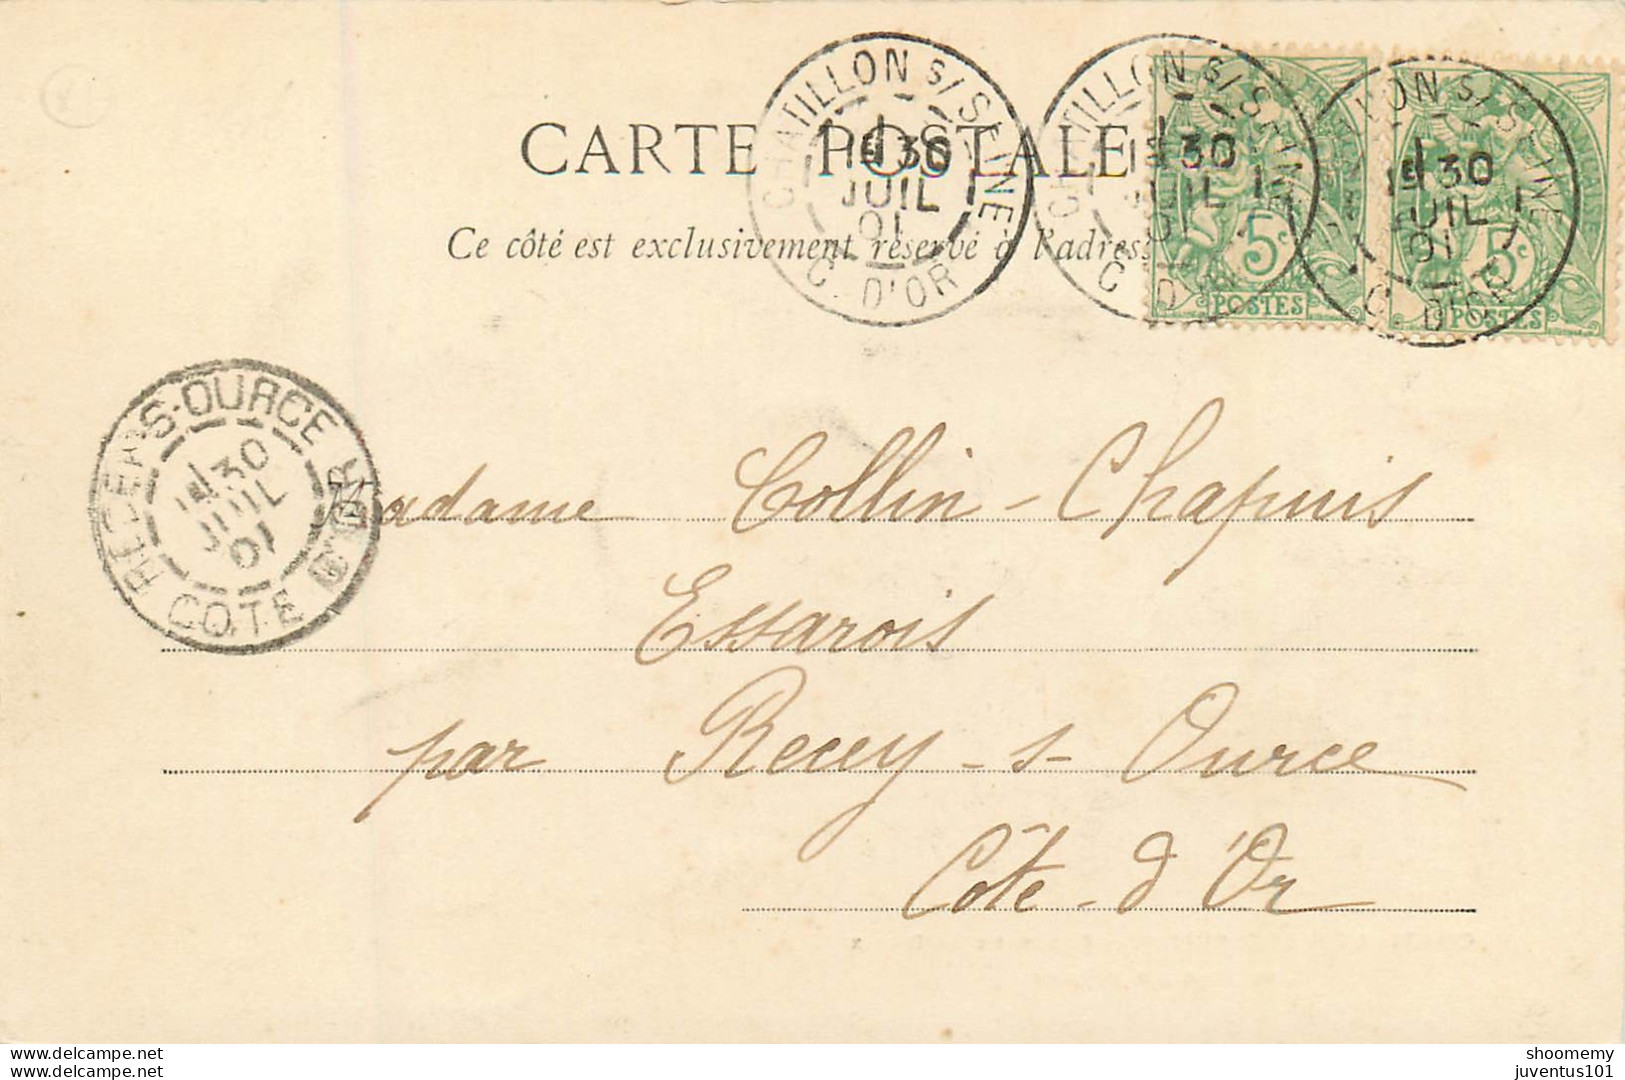 CARTE POSTALE
Ce côté est exclusivement réservé à l'adresse
CHATILLON S/ SEINE
1E 30
JUIL
01
C. D'OR
CHATILLON S/ SEINE
1E 30
JUIL
01
C. D'OR
5c
POSTES
CHATILLON S/ SEINE
1E 30
JUIL
01
C. D'OR
5c
POSTES
RECEY-S-OURCE
1E 30
JUIL
01
COTE D'OR
Madame Collin-Chapuis
Essarois
par Recey-s-Ource
Côte-d'Or
delcampe.net
shoomemy
juventus101